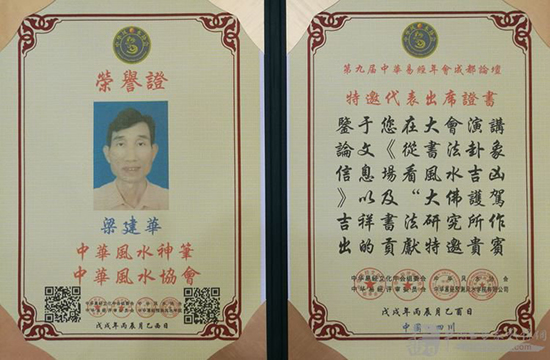 榮譽證
梁建華
中華風水神筆
中華風水協會
戊戌年丙辰月己酉日
第九屆中華易經年會成都論壇
特邀代表出席證書
鑒于您在大會演講
論文《從書法卦象
信息場看風水吉凶
》以及“大佛護駕
吉祥書法研究所作
出的貢獻特邀貴賓
戊戌年丙辰月己酉日
中國 四川